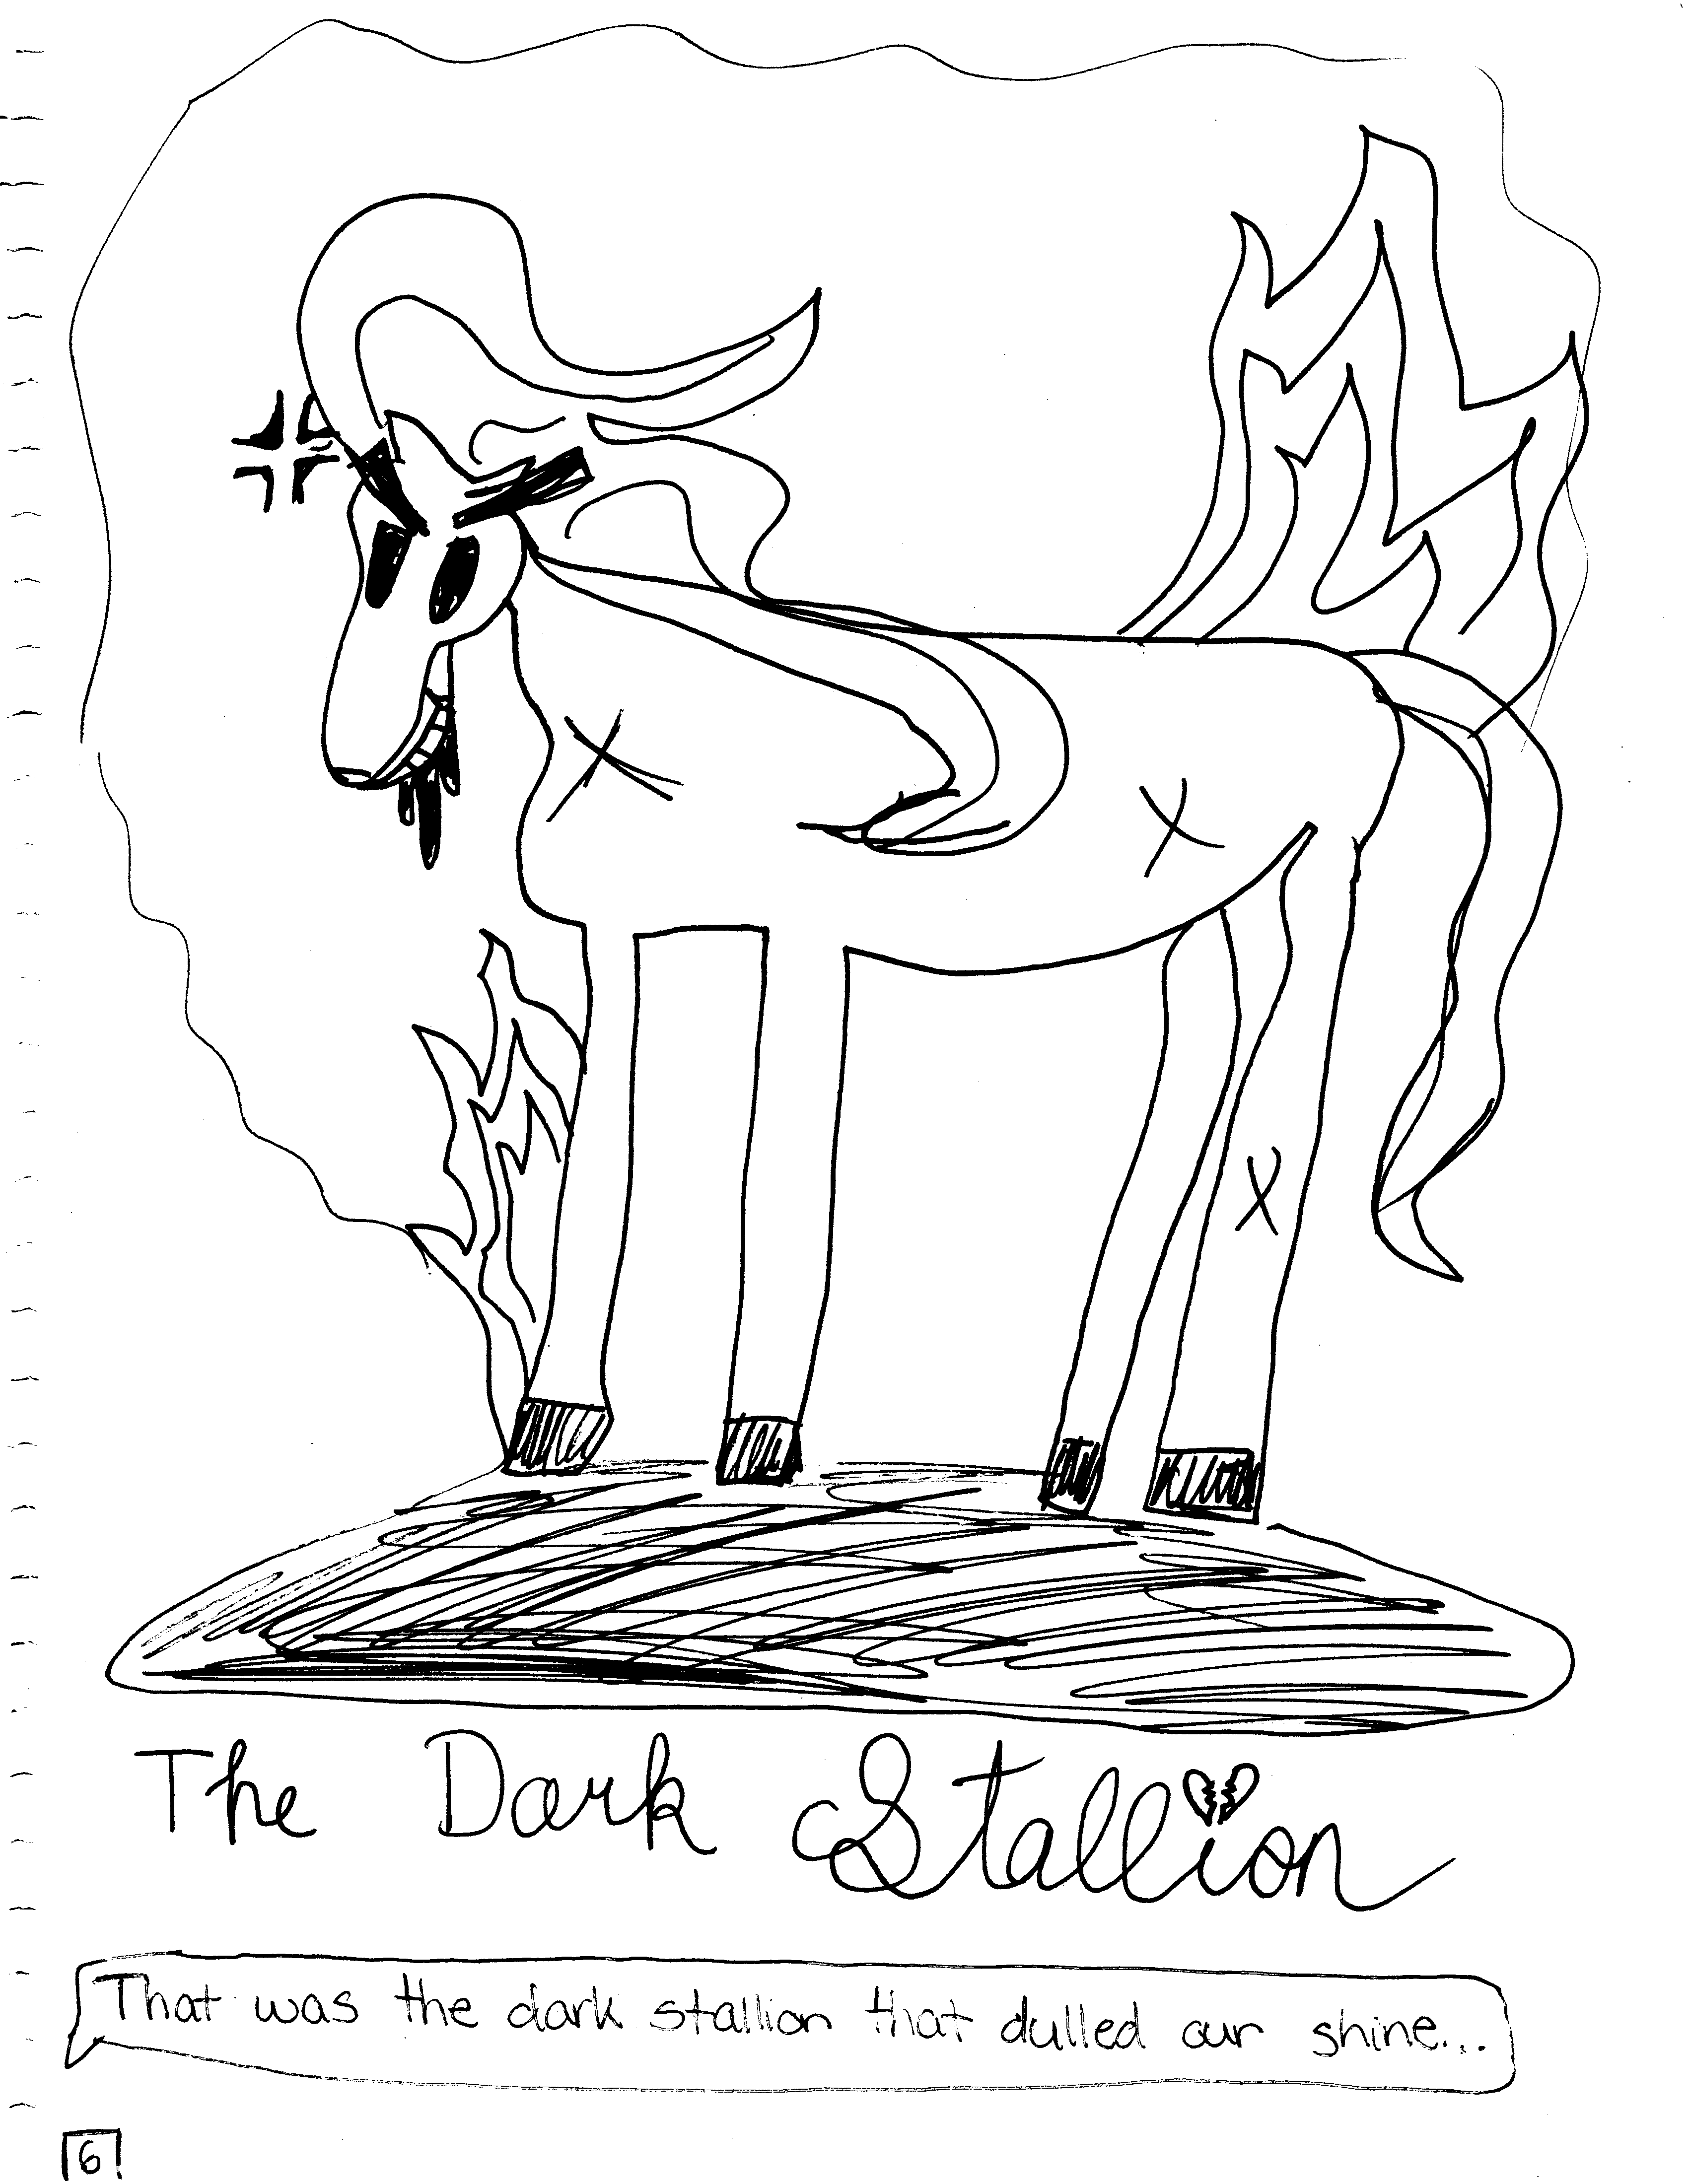 The Dark Stallion
That was the dark stallion that dulled our shine...
6